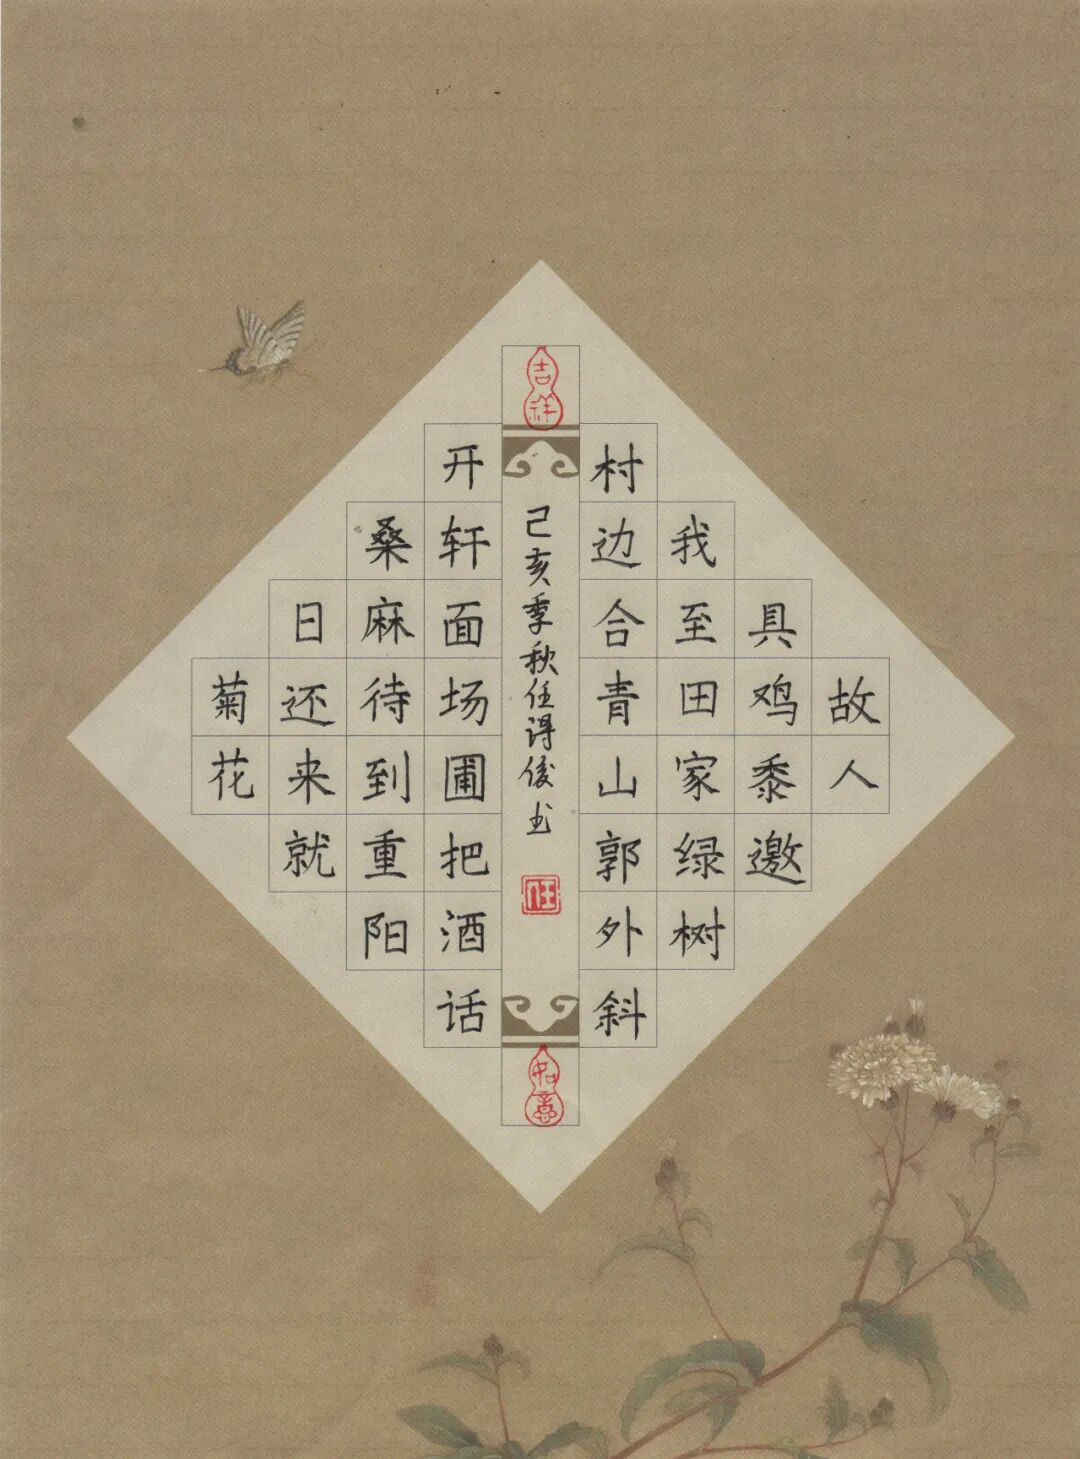 故人
具鸡黍邀
我至田家绿树
村边合青山郭外斜
吉祥
己亥季秋任得俊书
任
如意
开轩面场圃把酒话
桑麻待到重阳
日还来就
菊花